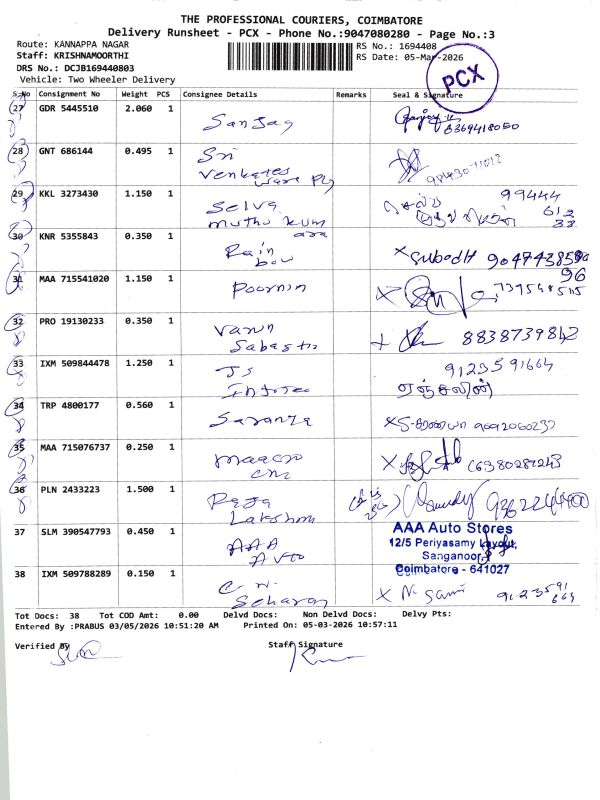 THE PROFESSIONAL COURIERS, COIMBATORE
Delivery Runsheet - PCX - Phone No.:9047080280 - Page No.:3
Route: KANNAPPA NAGAR
RS No.: 1694408
Staff: KRISHNAMOORTHI
RS Date: 05-Mar-2026
DRS No.: DCJB169440803
PCX
Vehicle: Two Wheeler Delivery
S.No Consignment No Weight PCS Consignee Details Remarks Seal & Signature
27 GDR 5445510 2.060 1 Sanjay 8369418050
28 GNT 686144 0.495 1 Sri
Venkates
29 KKL 3273430 1.150 1 Selva 99444
muthu kum 612
ara 33
30 KNR 5355843 0.350 1 Rain x Subodh
bow
31 MAA 715541020 1.150 1 Poornim
32 PRO 19130233 0.350 1 Varun 8838739842
Sabastin
33 IXM 509844478 1.250 1 JS 9123591664
Infotec ஏஞ்சலின்
34 TRP 4800177 0.560 1 Saranya
35 MAA 715076737 0.250 1 maacro
cnc
36 PLN 2433223 1.500 1 Raja
Lakshmi
37 SLM 390547793 0.450 1 AAA
Auto
AAA Auto Stores
12/5 Periyasamy Layout,
Sanganoor,
Coimbatore - 641027
38 IXM 509788289 0.150 1 x N. Sami 9123591
664
Tot Docs: 38 Tot COD Amt: 0.00 Delvd Docs: Non Delvd Docs: Delvy Pts:
Entered By :PRABUS 03/05/2026 10:51:20 AM Printed On: 05-03-2026 10:57:11
Verified By Staff Signature